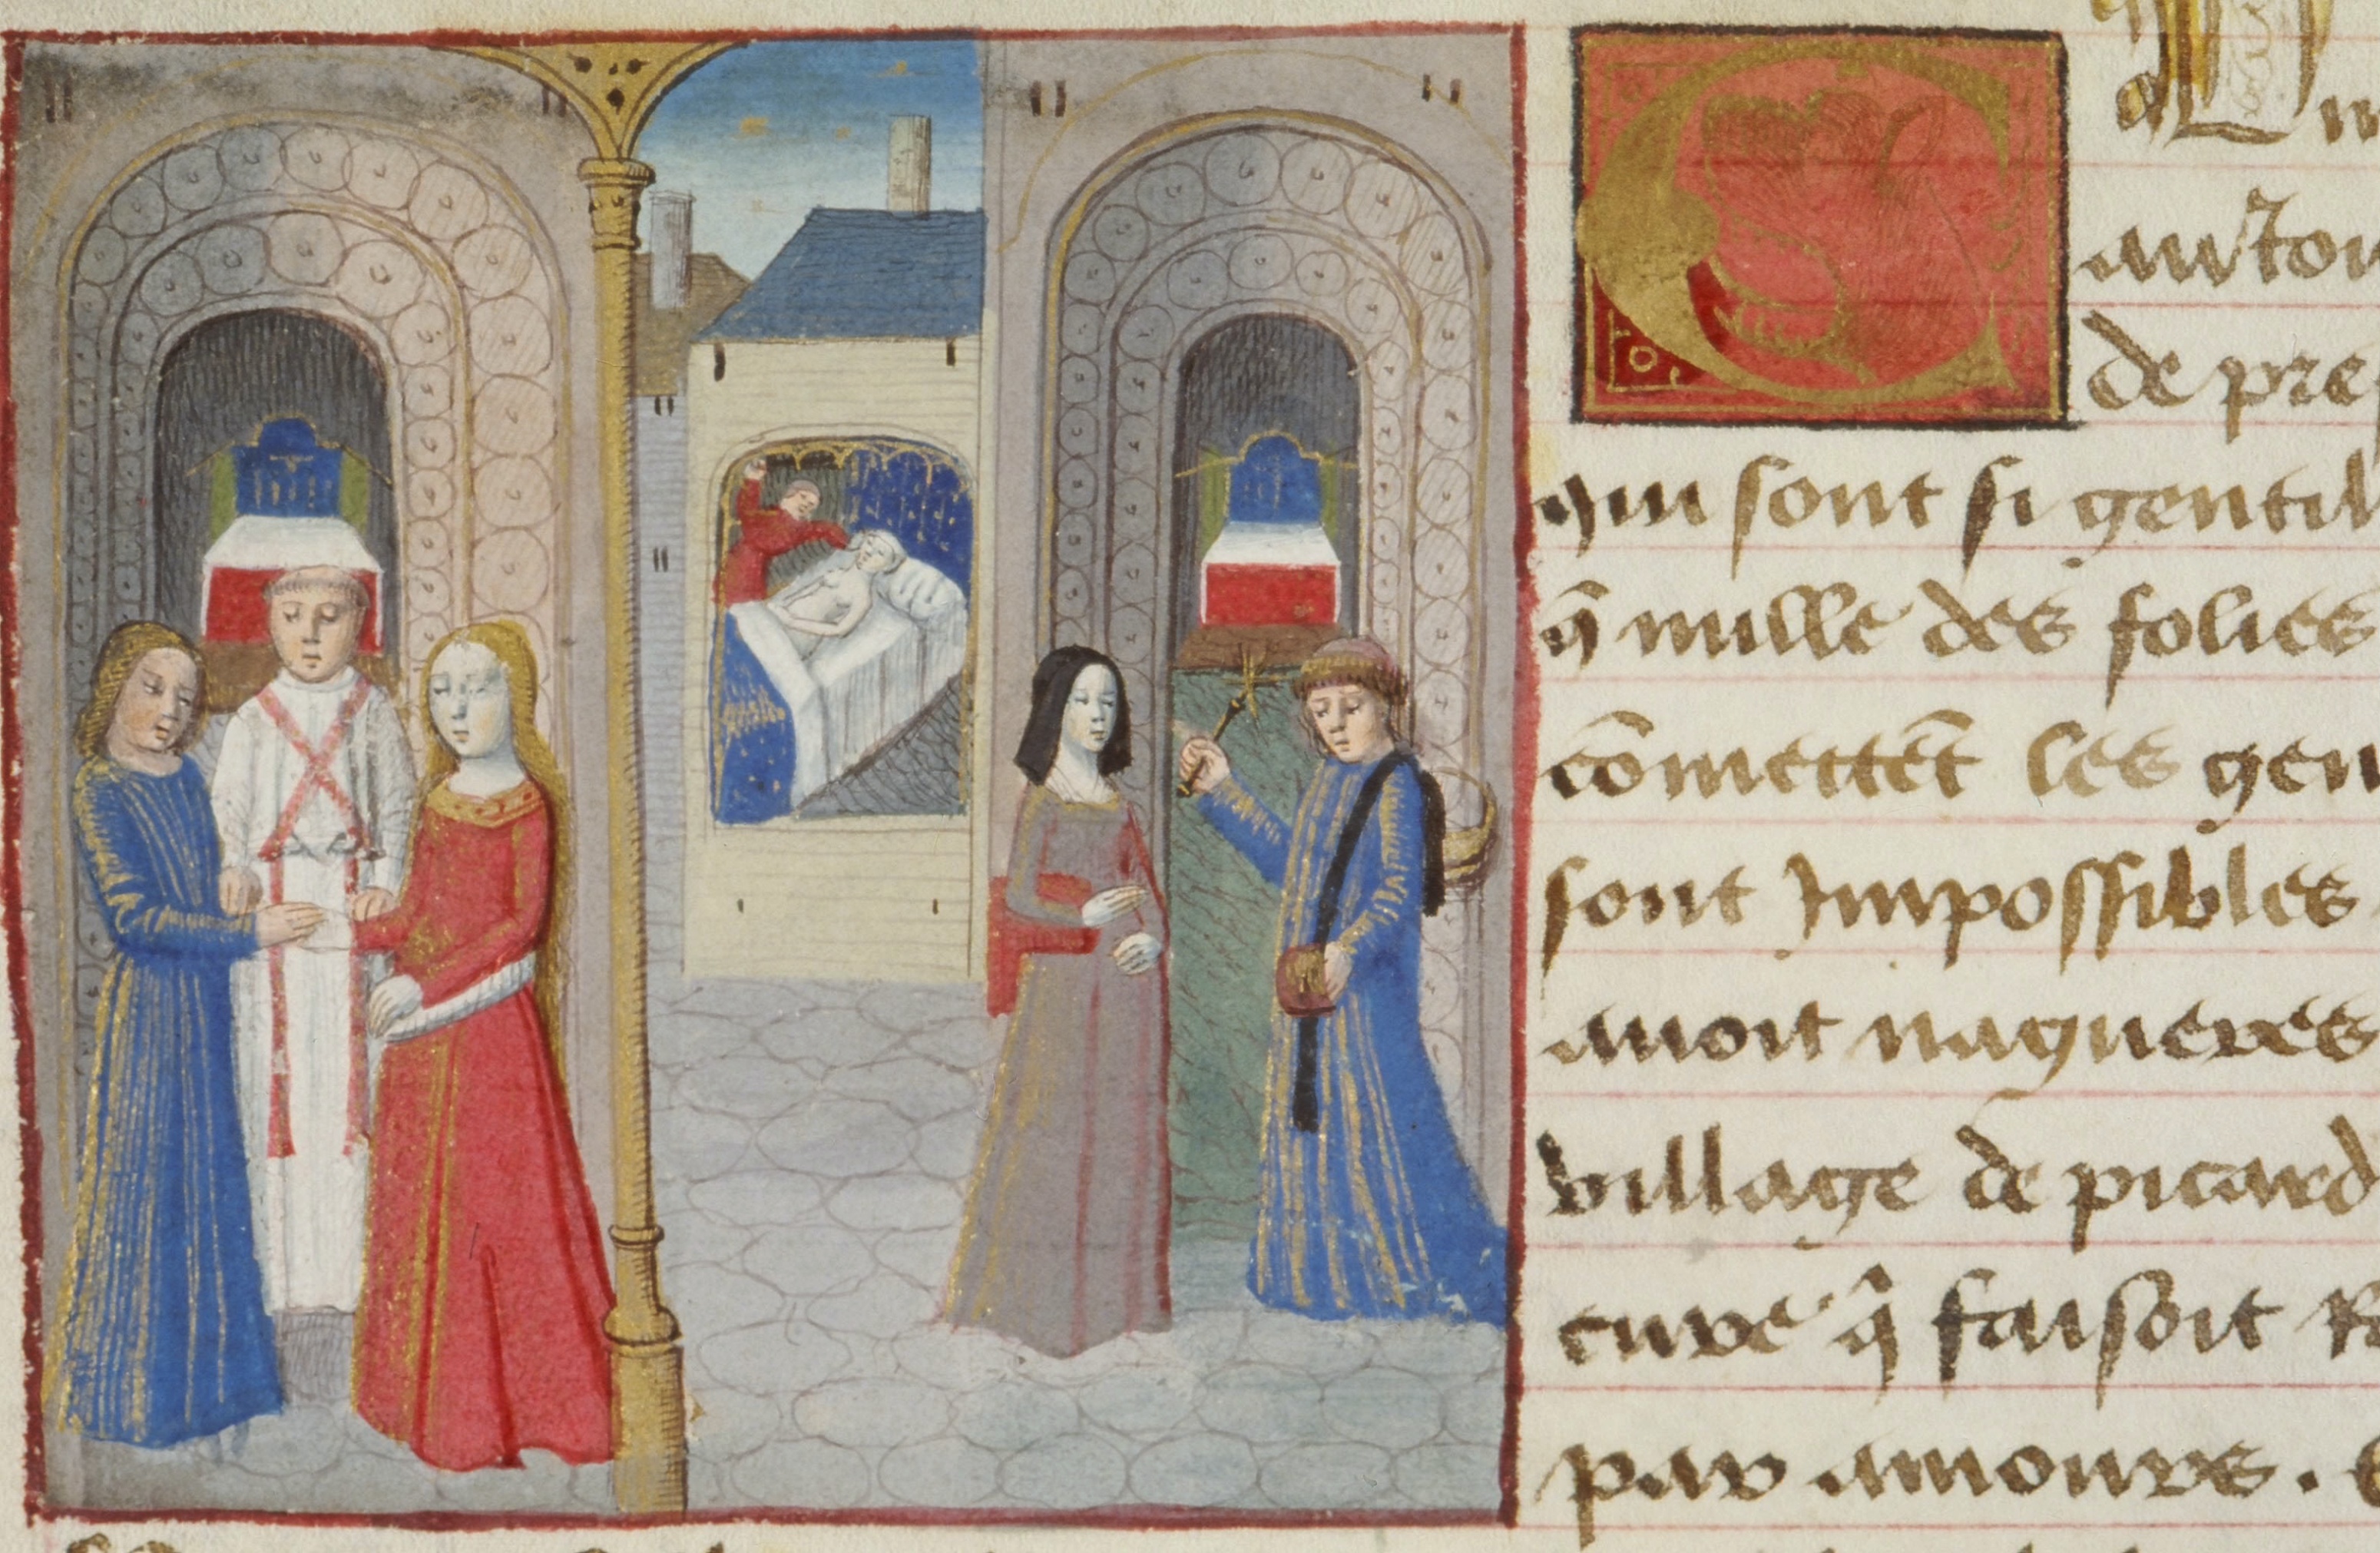 autou
de pre
qui sont si gentil
q̄ mille des folies
cōmettēt les gen
sont Impossibles
auoit nagueres
village de picard
cure q̄ faisoit
par amours.